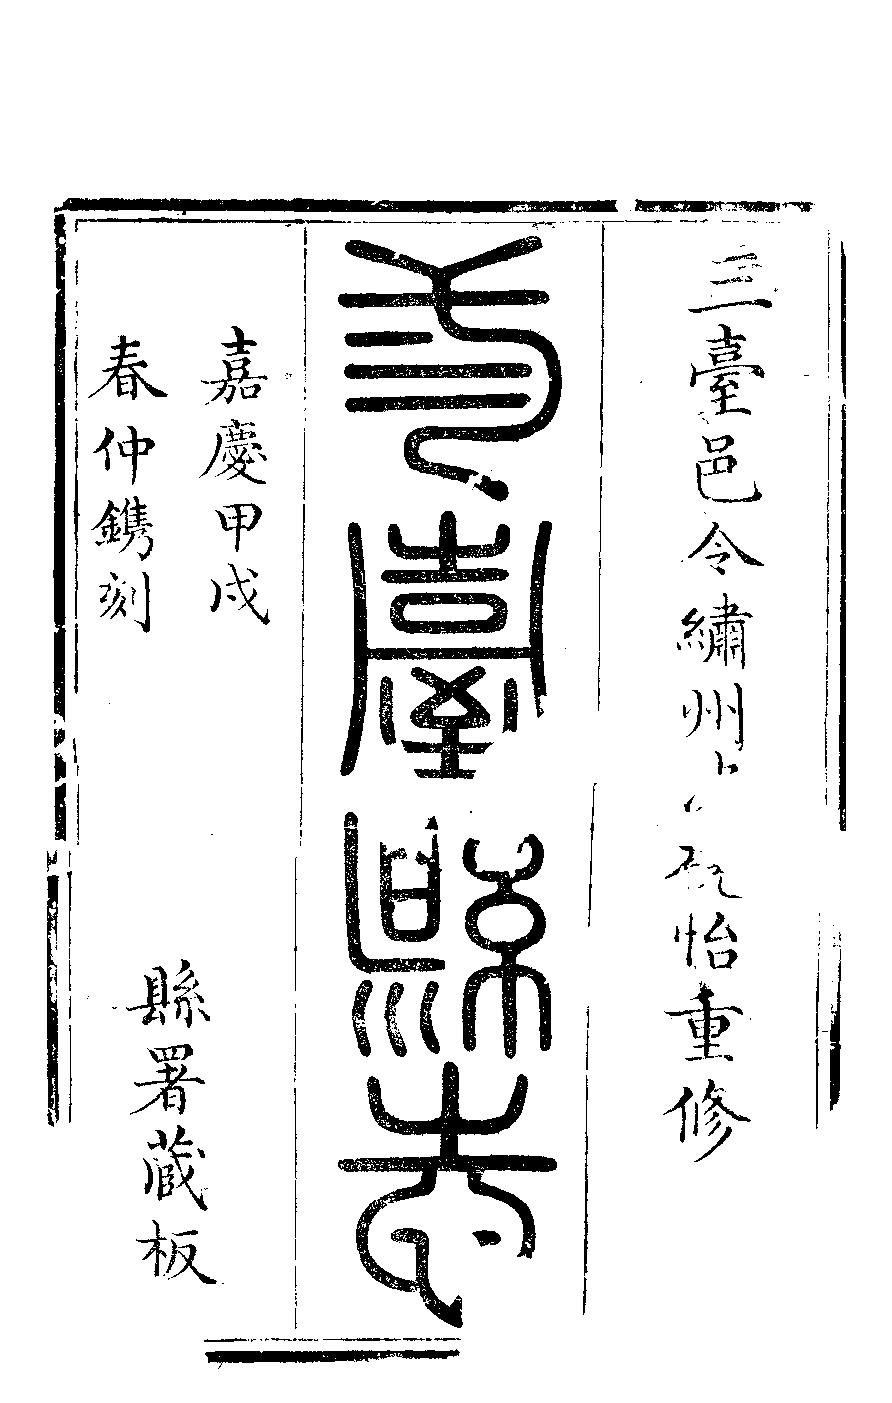 三臺邑令繡州怡重修
弎臺縣志
嘉慶甲戌
春仲鎸刻
縣署藏板